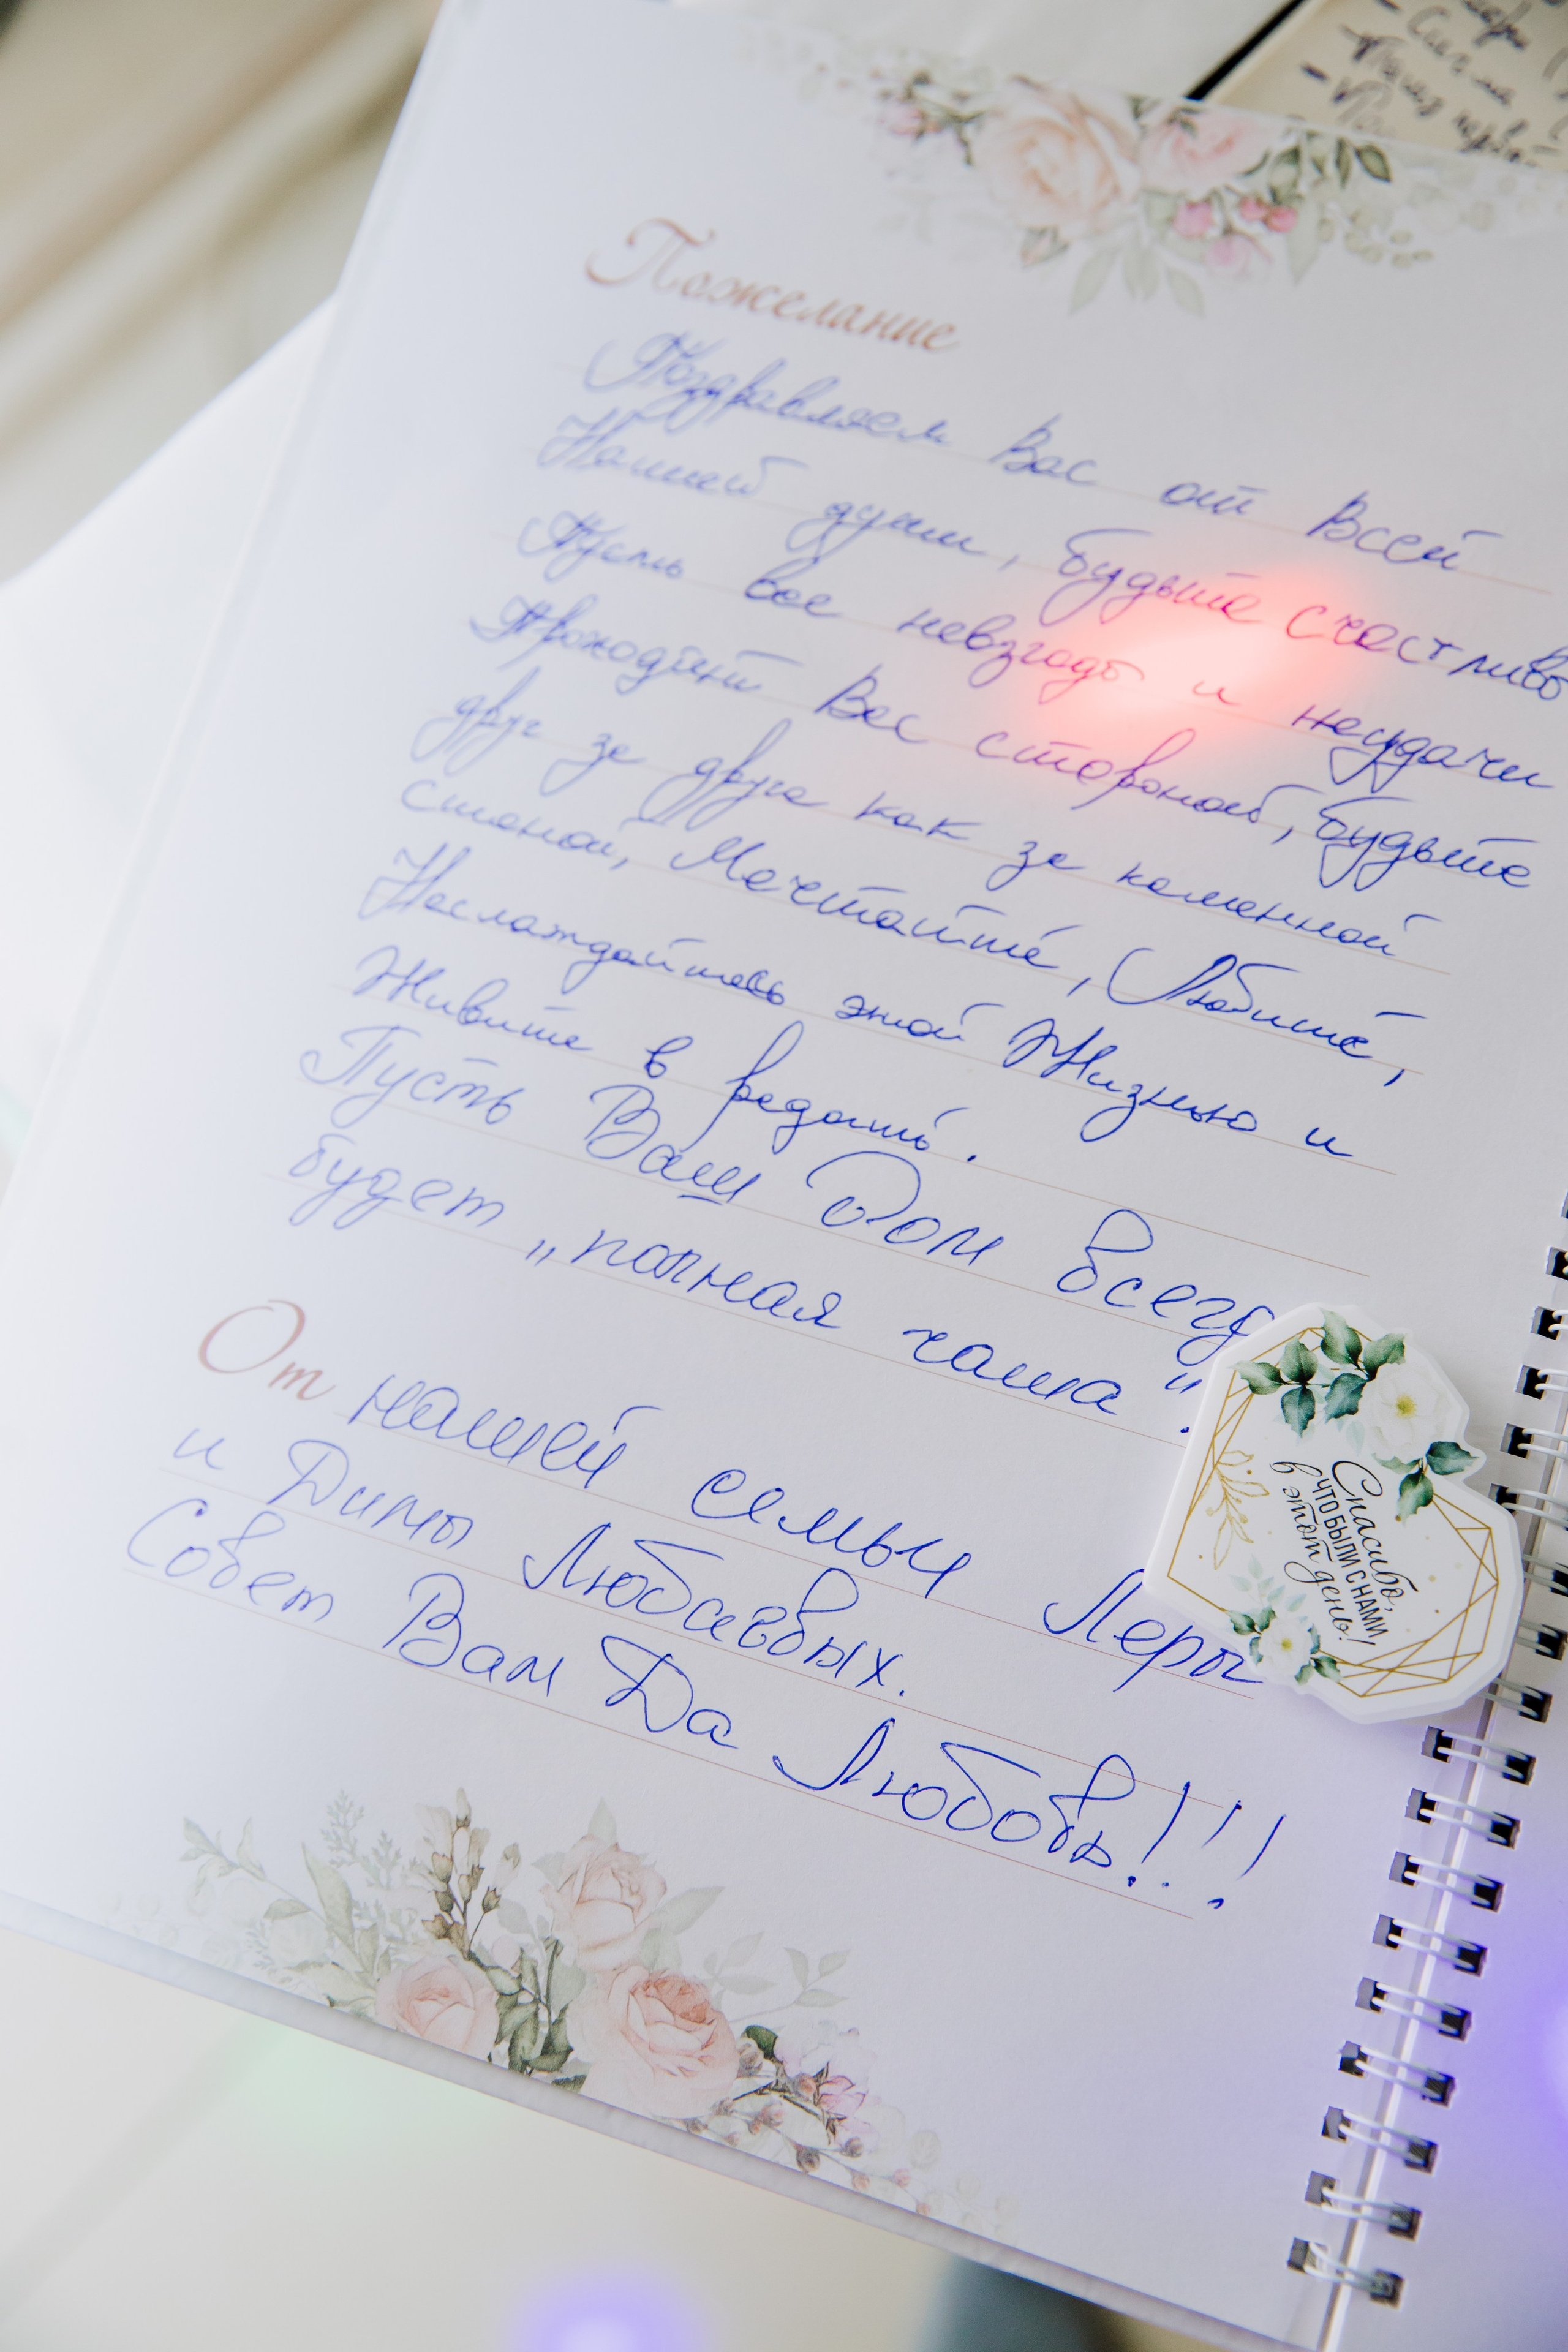 Пожелание
Поздравляем Вас от Всей
Нашей души, будьте счастливы
Пусть все невзгоды и неудачи
Проходят Вас стороной, будьте
друг за друга как за каменной
стеной, Мечтайте, Любите,
Наслаждайтесь этой Жизнью и
Живите в радость.
Пусть Ваш Дом всегд
будет „полная чаша".
От нашей семьи Леры
и Димы
Совет Вам Да Любовь!!!
Спасибо,
ЧТО БЫЛИ С НАМИ
в этот день!